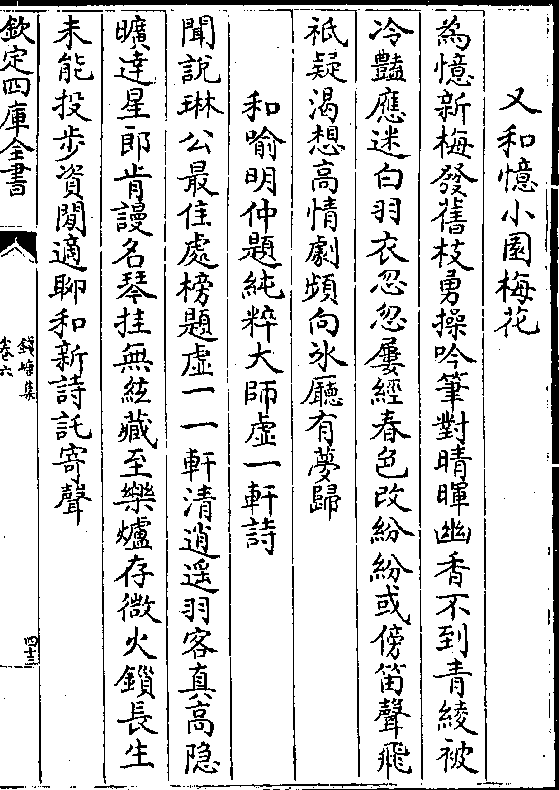 又和憶小園梅花
為憶新梅發舊枝勇操吟筆對晴暉幽香不到青綾被
冷豔應迷白羽衣忽忽屢經春色改紛紛或傍笛聲飛
祇疑渴想高情劇頻向氷廳有夢歸
和喻明仲題純粹大師虛一軒詩
聞說琳公最住處榜題虛一一軒清逍遥羽客真高隐
曠達星郎肯謾名琴挂無絃藏至樂爐存微火鎻長生
未能投步資閒適聊和新詩託寄聲
欽定四庫全書
卷六
四十三